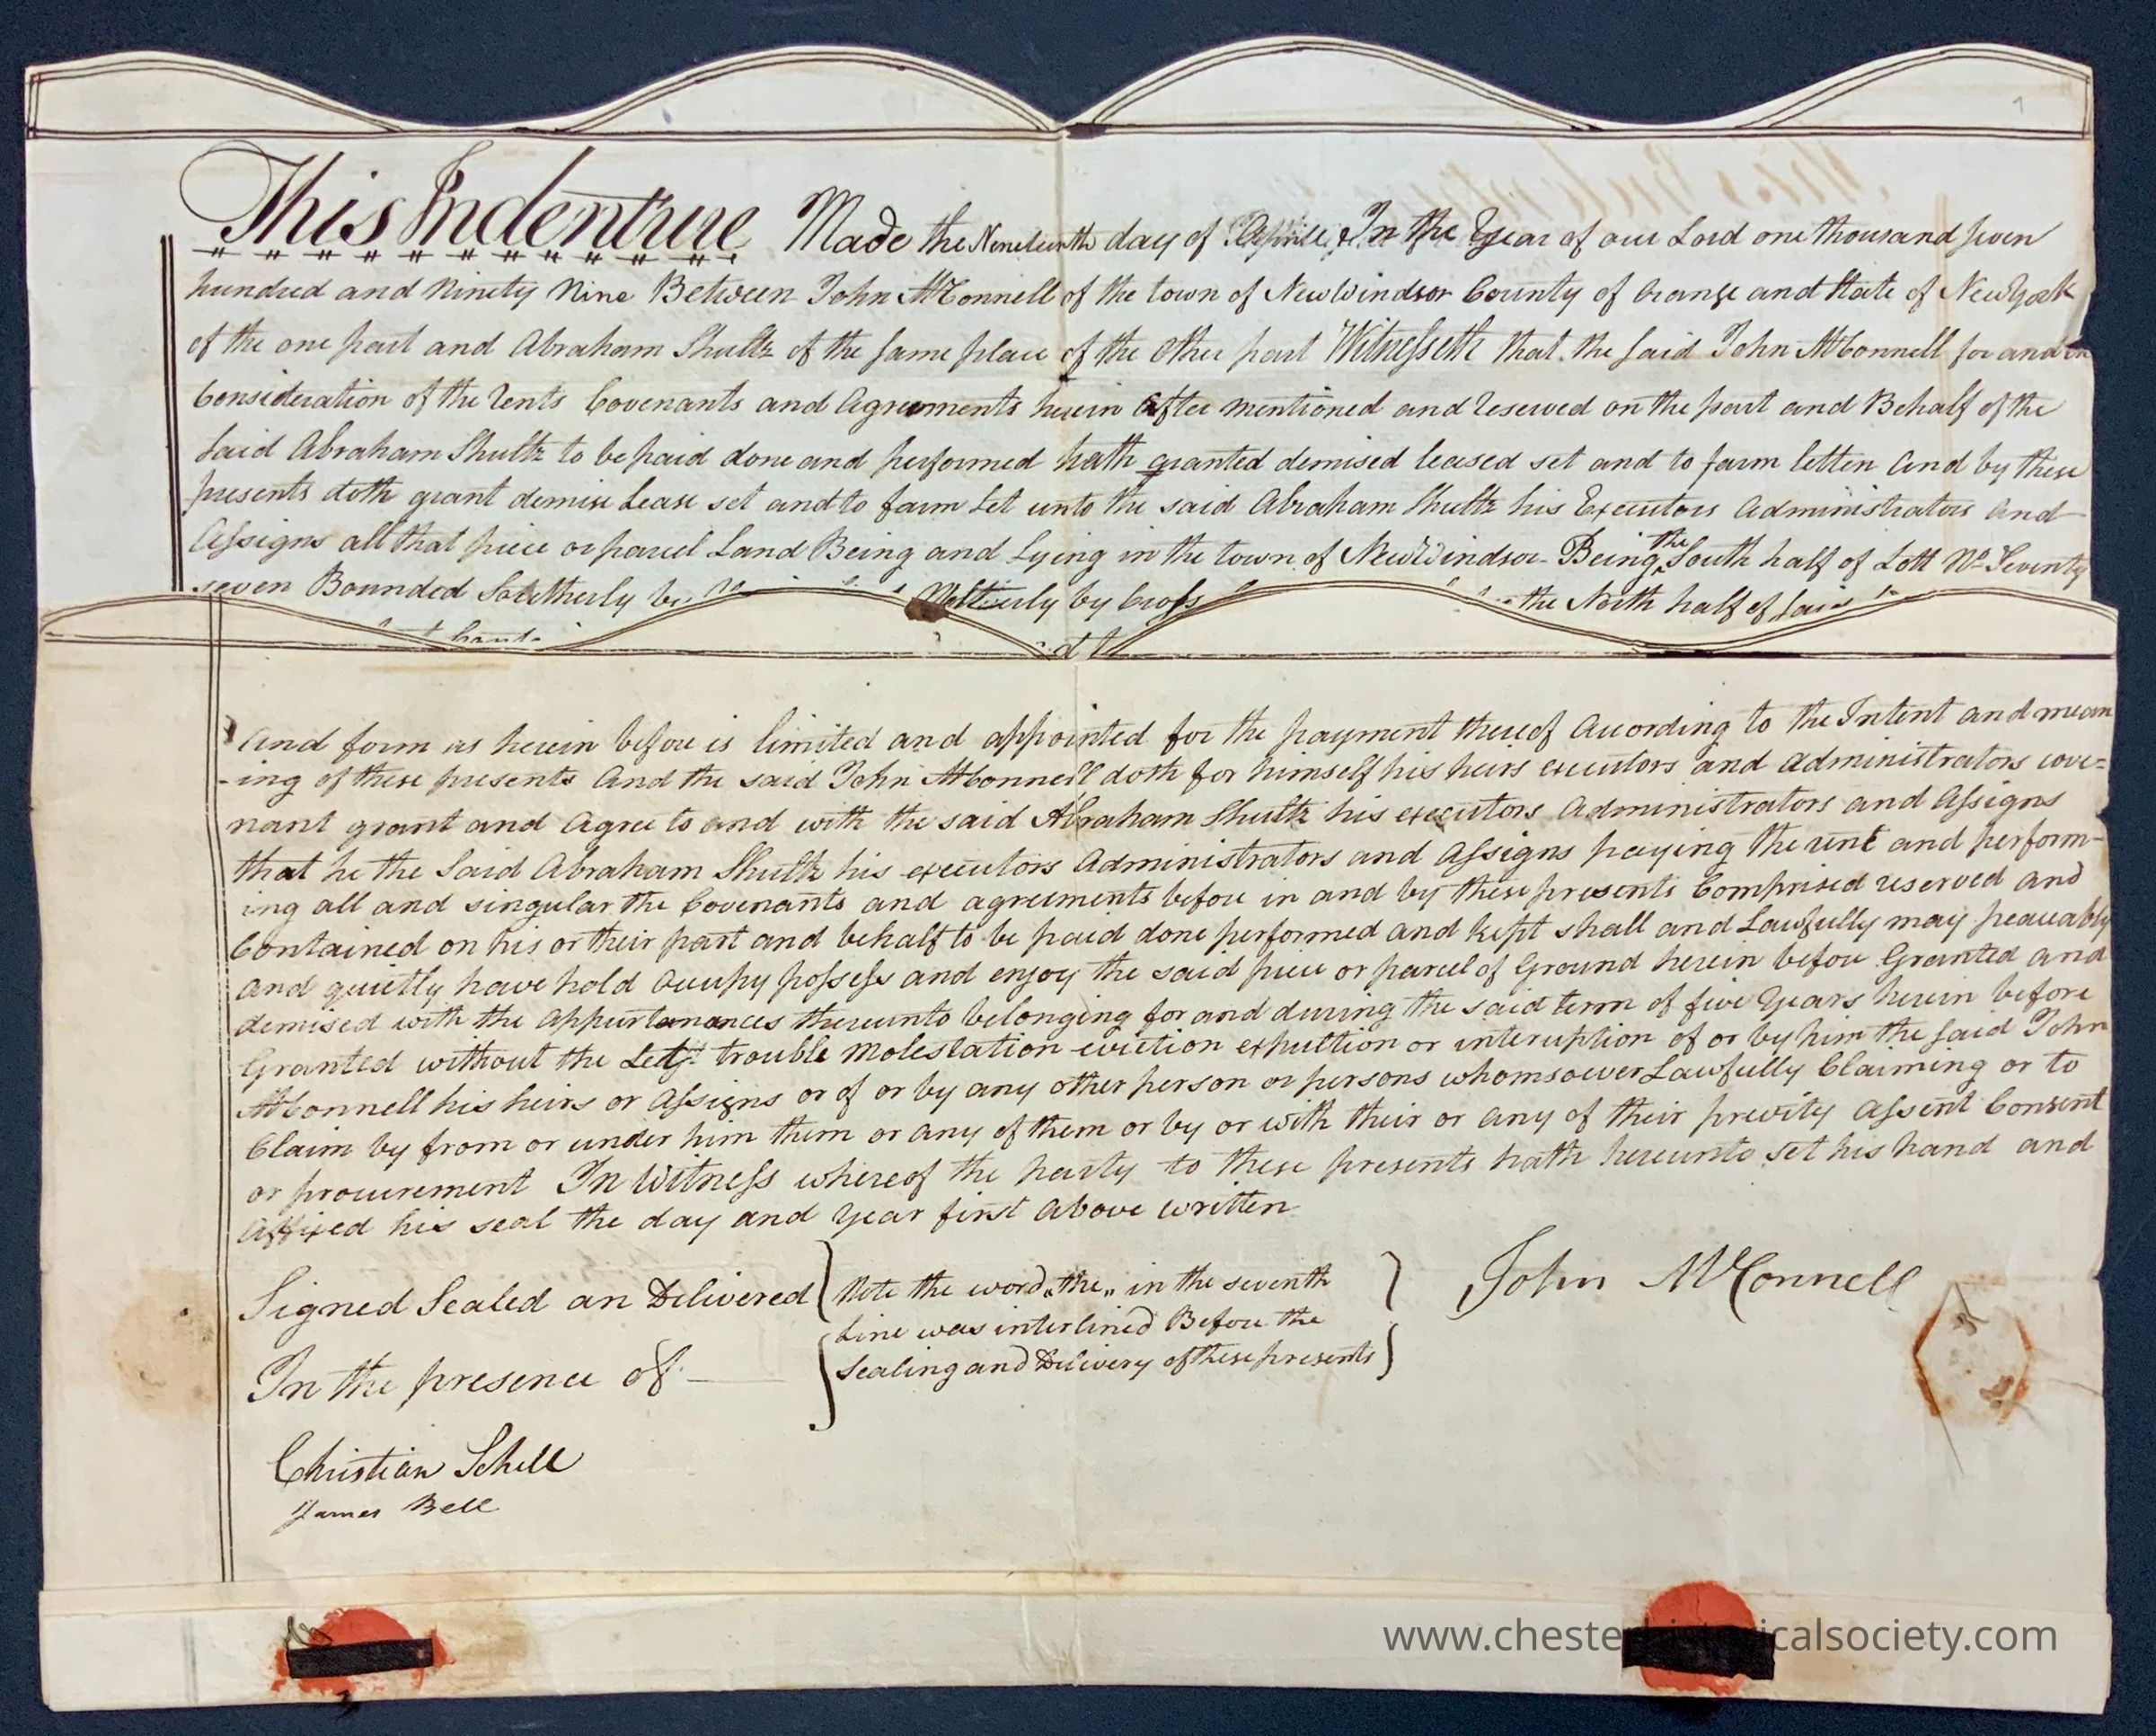 This Indenture Made the Nineteenth day of Aprile In the Year of our Lord one thousand seven
hundred and Ninety Nine Between John McConnell of the town of New Windsor County of Orange and State of New York
of the one part and Abraham Shultz of the same place of the Other part Witnesseth that the said John McConnell for and in
Consideration of the Rents Covenants and Agreements herein After mentioned and reserved on the part and Behalf of the
said Abraham Shultz to be paid done and performed hath granted demised leased set and to farm letten And by these
presents doth grant demise Lease set and to farm Let unto the said Abraham Shultz his Executors Administrators And
Assigns all that piece or parcel Land Being and Lying in the town of New Windsor Being the South half of Lott No Seventy
seven Bounded Southerly by by Cross the North half of said
And form as herein before is limited and appointed for the payment thereof According to the Intent and mean
-ing of these presents And the said John McConnell doth for himself his heirs executors and administrators cove=
nant grant and Agree to and with the said Abraham Shultz his executors Administrators and Assigns
that he the Said Abraham Shultz his executors Administrators and Assigns paying the rent and perform-
ing all and singular the Covenants and agreements before in and by these presents Comprised reserved and
Contained on his or their part and behalf to be paid done performed and kept shall and Lawfully may peaceably
and quietly have hold occupy possess and enjoy the said piece or parcel of Ground herein before Granted and
demised with the Appurtenances thereunto belonging for and during the said term of five Years herein before
Granted without the Let trouble Molestation eviction expultion or interuption of or by him the said John
McConnell his heirs or Assigns or of or by any other person or persons whomsoever Lawfully Claiming or to
Claim by from or under him them or any of them or by or with their or any of their previty Assent Consent
or procurement In Witness whereof the party to these presents hath hereunto set his hand and
Affixed his seal the day and year first Above written
Signed Sealed an Delivered
In the presence of
Note the word „the„ in the seventh
Line was interlined Before the
Sealing and Delivery of these presents
John McConnell
Christian Schell
James Bell
www.chesterhistoricalsociety.com